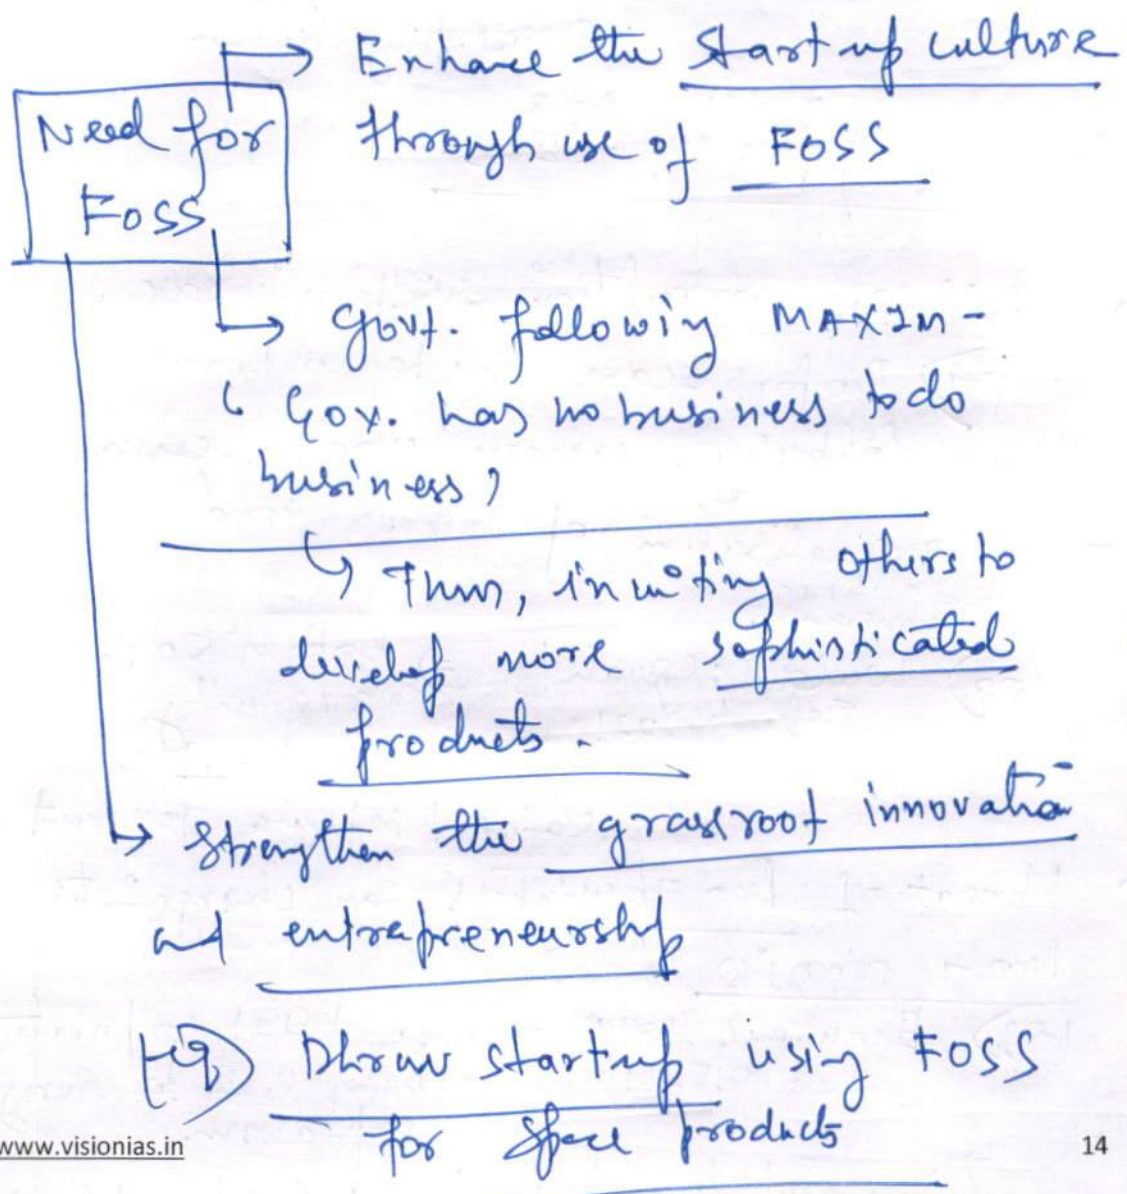 Need for
FOSS
→ Enhance the start up culture
through use of FOSS
→ Govt. following MAXIM -
' Gov. has no business to do
business '
↳ Thus, inviting others to
develop more sophisticated
products.
→ Strengthen the grassroot innovation
and entrepreneurship
Eg) Dhruv startup using FOSS
for space products
www.visionias.in
14